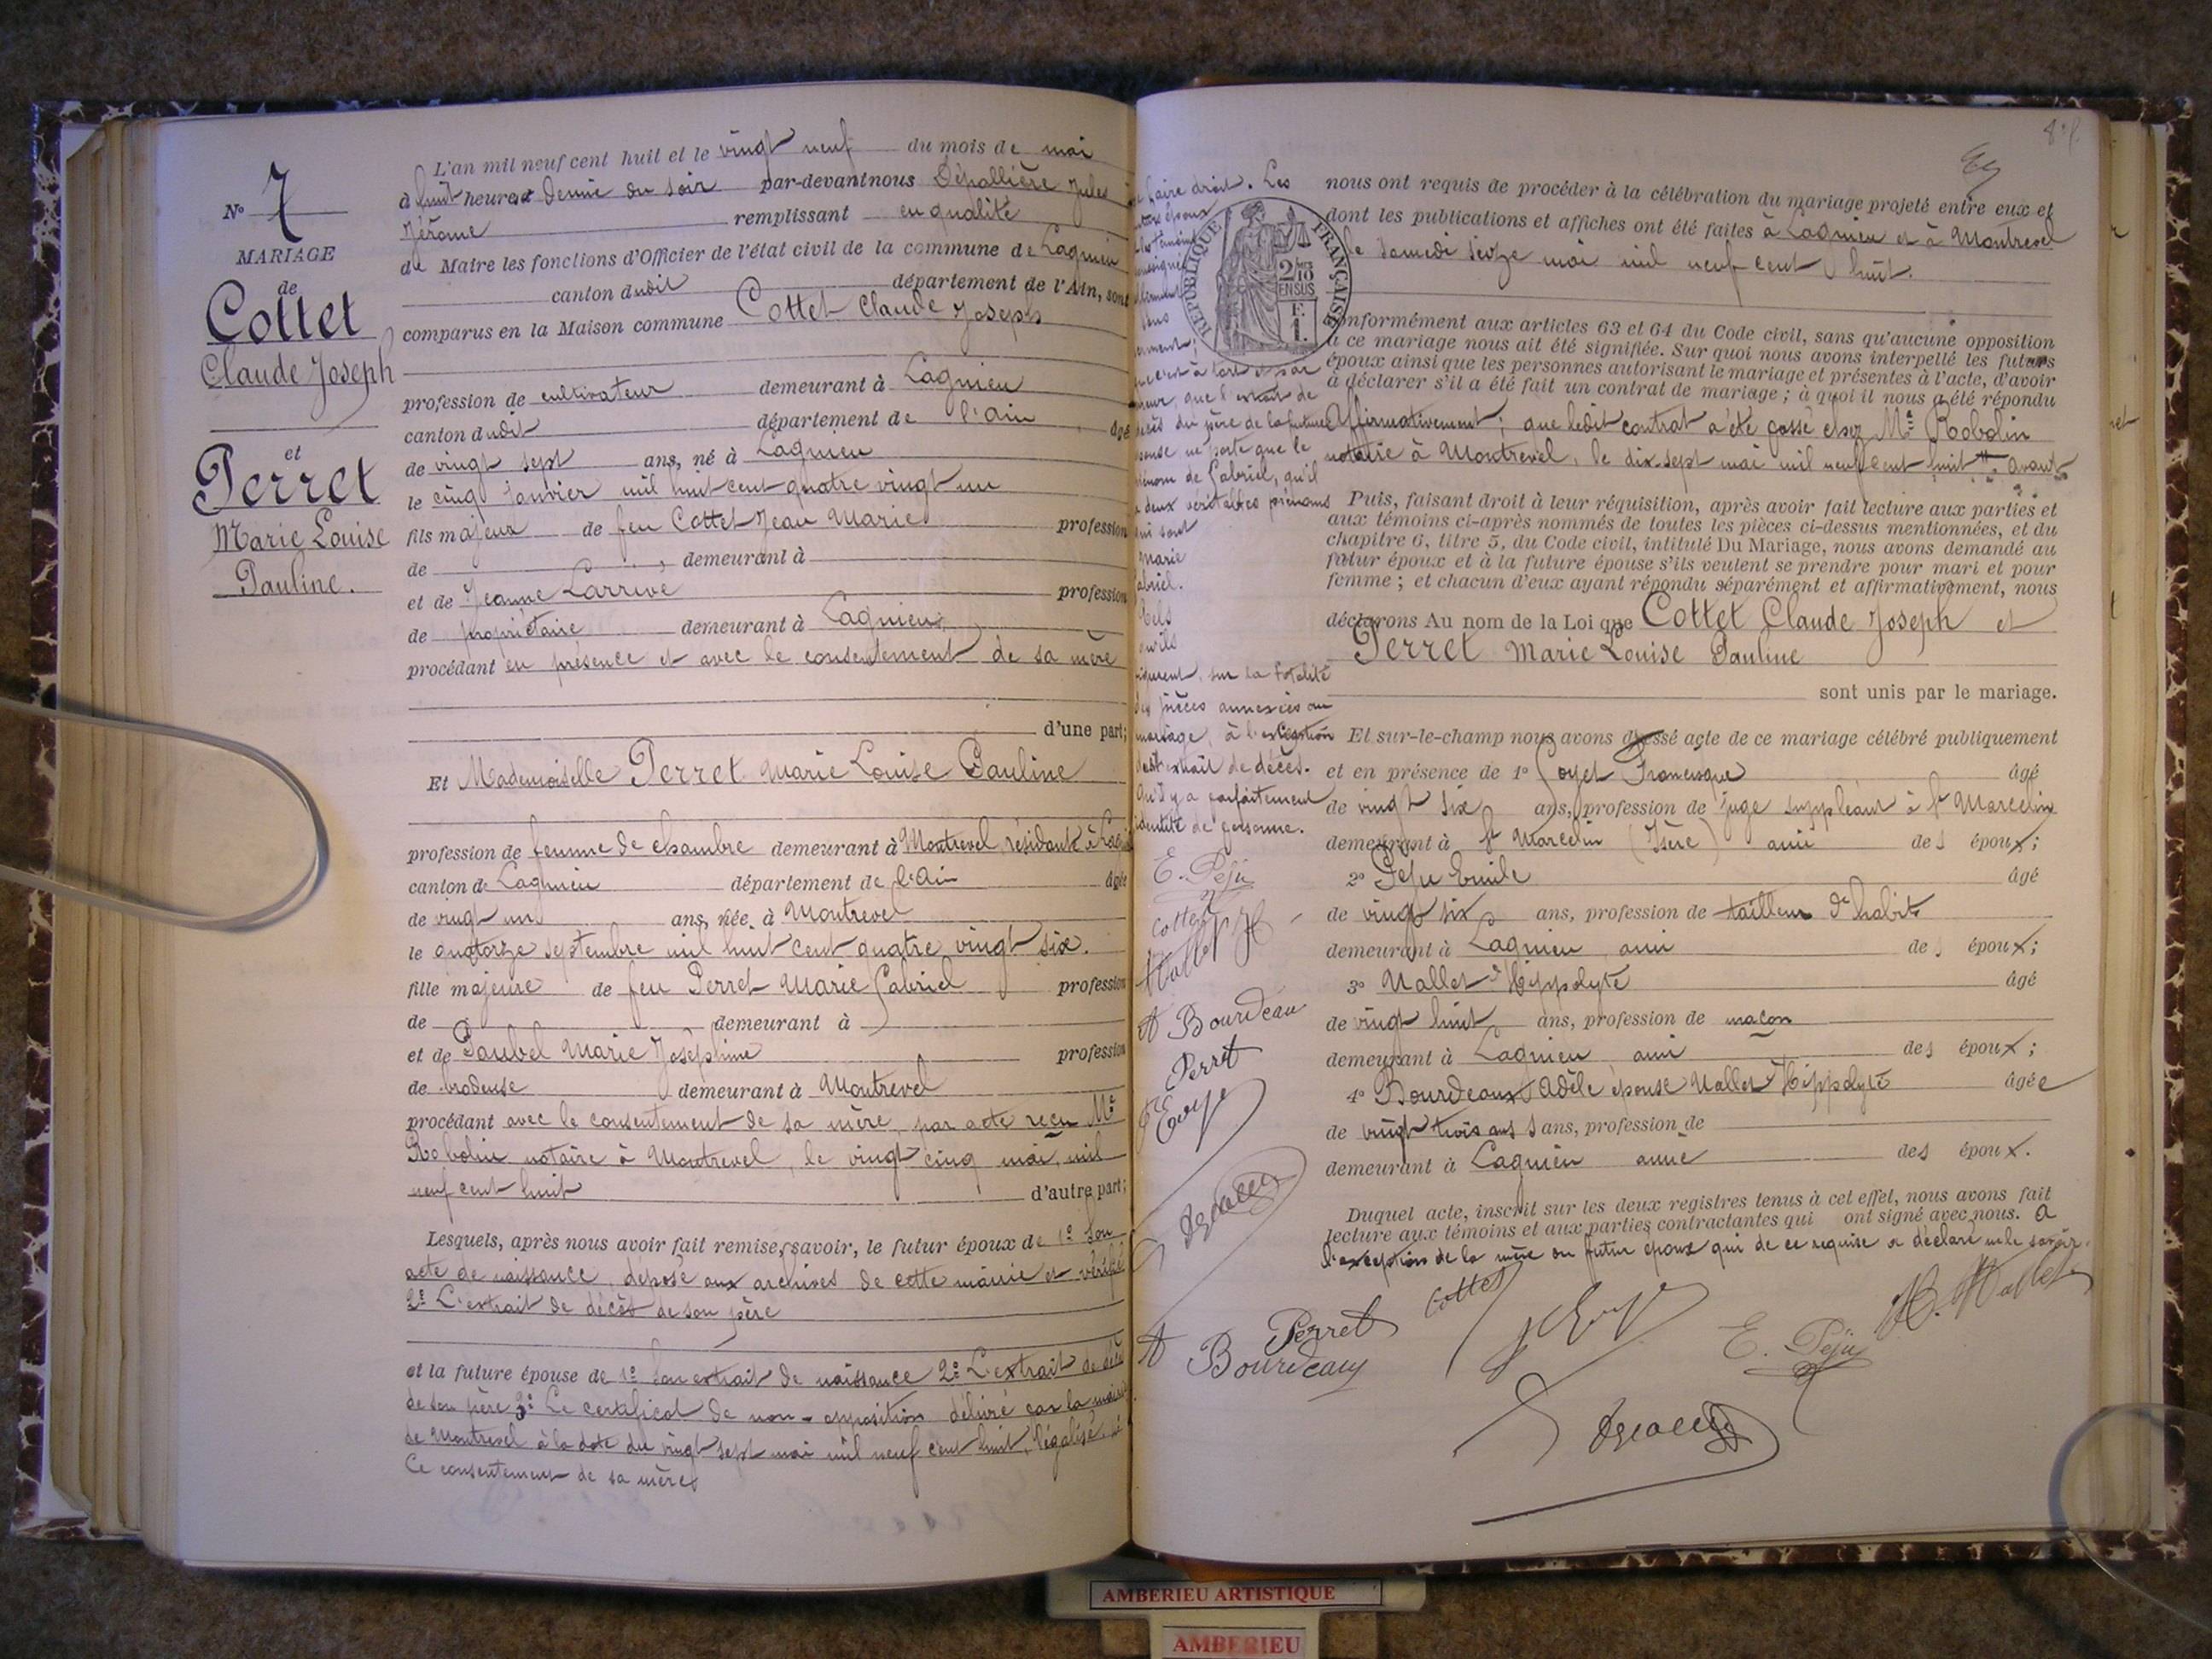 N° 7
MARIAGE
de
Cottet
Claude Joseph
et
Perret
Marie Louise
Pauline.
L'an mil neuf cent huit et le vingt neuf du mois de mai
à huit heures demie du soir par-devant nous Dépallière Jules
Jérôme remplissant en qualité
de Maire les fonctions d'Officier de l'état civil de la commune de Lagnieu
canton dudit département de l'Ain, sont
comparus en la Maison commune Cottet Claude Joseph
profession de cultivateur demeurant à Lagnieu
canton dudit département de l'Ain âgé
de vingt sept ans, né à Lagnieu
le cinq janvier mil huit cent quatre vingt un
fils majeur de feu Cottet Jean Marie profession
de demeurant à
et de Jeanne Larrivé profession
de propriétaire demeurant à Lagnieu,
procédant en présence et avec le consentement de sa mère
d'une part;
Et Mademoiselle Perret Marie Louise Pauline
profession de femme de chambre demeurant à Montrevel, résidant à
canton de Lagnieu département de l'Ain âgée
de vingt un ans, née à Montrevel
le quatorze septembre mil huit cent quatre vingt six.
fille majeure de feu Perret Marie Gabriel profession
de demeurant à
et de Paubel Marie Joséphine profession
de brodeuse demeurant à Montrevel
procédant avec le consentement de sa mère, par acte reçu Me
Robolin notaire à Montrevel, le vingt cinq mai, mil
neuf cent huit d'autre part;
Lesquels, après nous avoir fait remise, savoir, le futur époux de 1° Son
acte de naissance, déposé aux archives de cette mairie et vérifié
2° L'extrait de décès de son père
et la future épouse de 1° Son extrait de naissance 2° L'extrait de décès
de son père 3° Le certificat de non-opposition délivré par la mairie
de Montrevel à la date du vingt sept mai mil neuf cent huit, légalisé.
Le consentement de sa mère
faire droit. Les
époux
à tort et par
que l'extrait de
décès du père de la future
ne porte que le
prénom de Gabriel, qu'il
a deux véritables prénoms
qui sont
Marie
Gabriel.
sur la totalité
des pièces annexées au
mariage, à l'exception
dudit extrait de décès.
Qu'il y a parfaitement
identité de personne.
E. Péju
Cottet
A Bourdeau
Perret
RÉPUBLIQUE FRANÇAISE
2/10
EN SUS
F.
1.
nous ont requis de procéder à la célébration du mariage projeté entre eux et
dont les publications et affiches ont été faites à Lagnieu et à Montrevel
le samedi seize mai mil neuf cent huit.
Conformément aux articles 63 et 64 du Code civil, sans qu'aucune opposition
à ce mariage nous ait été signifiée. Sur quoi nous avons interpellé les futurs
époux ainsi que les personnes autorisant le mariage et présentes à l'acte, d'avoir
à déclarer s'il a été fait un contrat de mariage ; à quoi il nous a été répondu
Affirmativement; que ledit contrat a été passé chez Me Robolin
notaire à Montrevel, le dix-sept mai mil neuf cent huit. avant
Puis, faisant droit à leur réquisition, après avoir fait lecture aux parties et
aux témoins ci-après nommés de toutes les pièces ci-dessus mentionnées, et du
chapitre 6, titre 5, du Code civil, intitulé Du Mariage, nous avons demandé au
futur époux et à la future épouse s'ils veulent se prendre pour mari et pour
femme ; et chacun d'eux ayant répondu séparément et affirmativement, nous
déclarons Au nom de la Loi que Cottet Claude Joseph et
Perret Marie Louise Pauline
sont unis par le mariage.
Et sur-le-champ nous avons dressé acte de ce mariage célébré publiquement
et en présence de 1° Goyet Francisque âgé
de vingt six ans, profession de juge suppléant à St Marcelin
demeurant à St Marcelin (Isère) ami des époux;
2° Péju Emile âgé
de vingt six ans, profession de tailleur d'habits
demeurant à Lagnieu ami des époux;
3° Nallet Hippolyte âgé
de vingt huit ans, profession de maçon
demeurant à Lagnieu ami des époux;
4° Bourdeaux Adèle épouse Nallet Hippolyte âgée
de vingt trois ans ans, profession de
demeurant à Lagnieu amie des époux.
Duquel acte, inscrit sur les deux registres tenus à cet effet, nous avons fait
lecture aux témoins et aux parties contractantes qui ont signé avec nous. A
l'exception de la mère du futur époux qui de ce requise a déclaré ne le savoir.
Cottet
H. Nallet
Perret
E. Péju
A Bourdeaux
AMBERIEU ARTISTIQUE
AMBERIEU